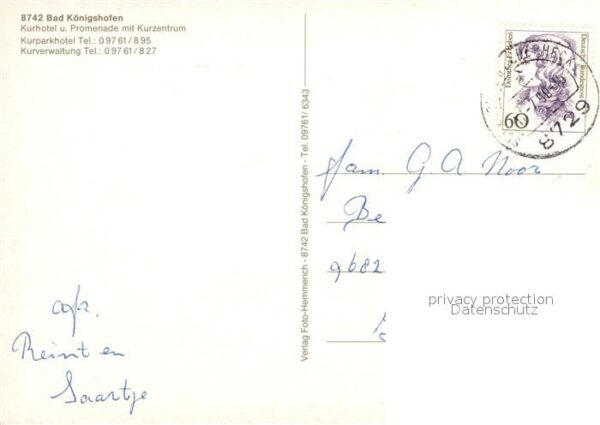 8742 Bad Königshofen
Kurhotel u. Promenade mit Kurzentrum
Kurparkhotel Tel.: 0 97 61 / 8 95
Kurverwaltung Tel.: 0 97 61 / 8 27
Verlag Foto-Hemmerich - 8742 Bad Königshofen - Tel. 09761/ 6343
Deutsche Bundespost
60
8729
Fam. G. A. Noor
Be
9682
privacy protection
Datenschutz
afz.
Reint en
Saartje